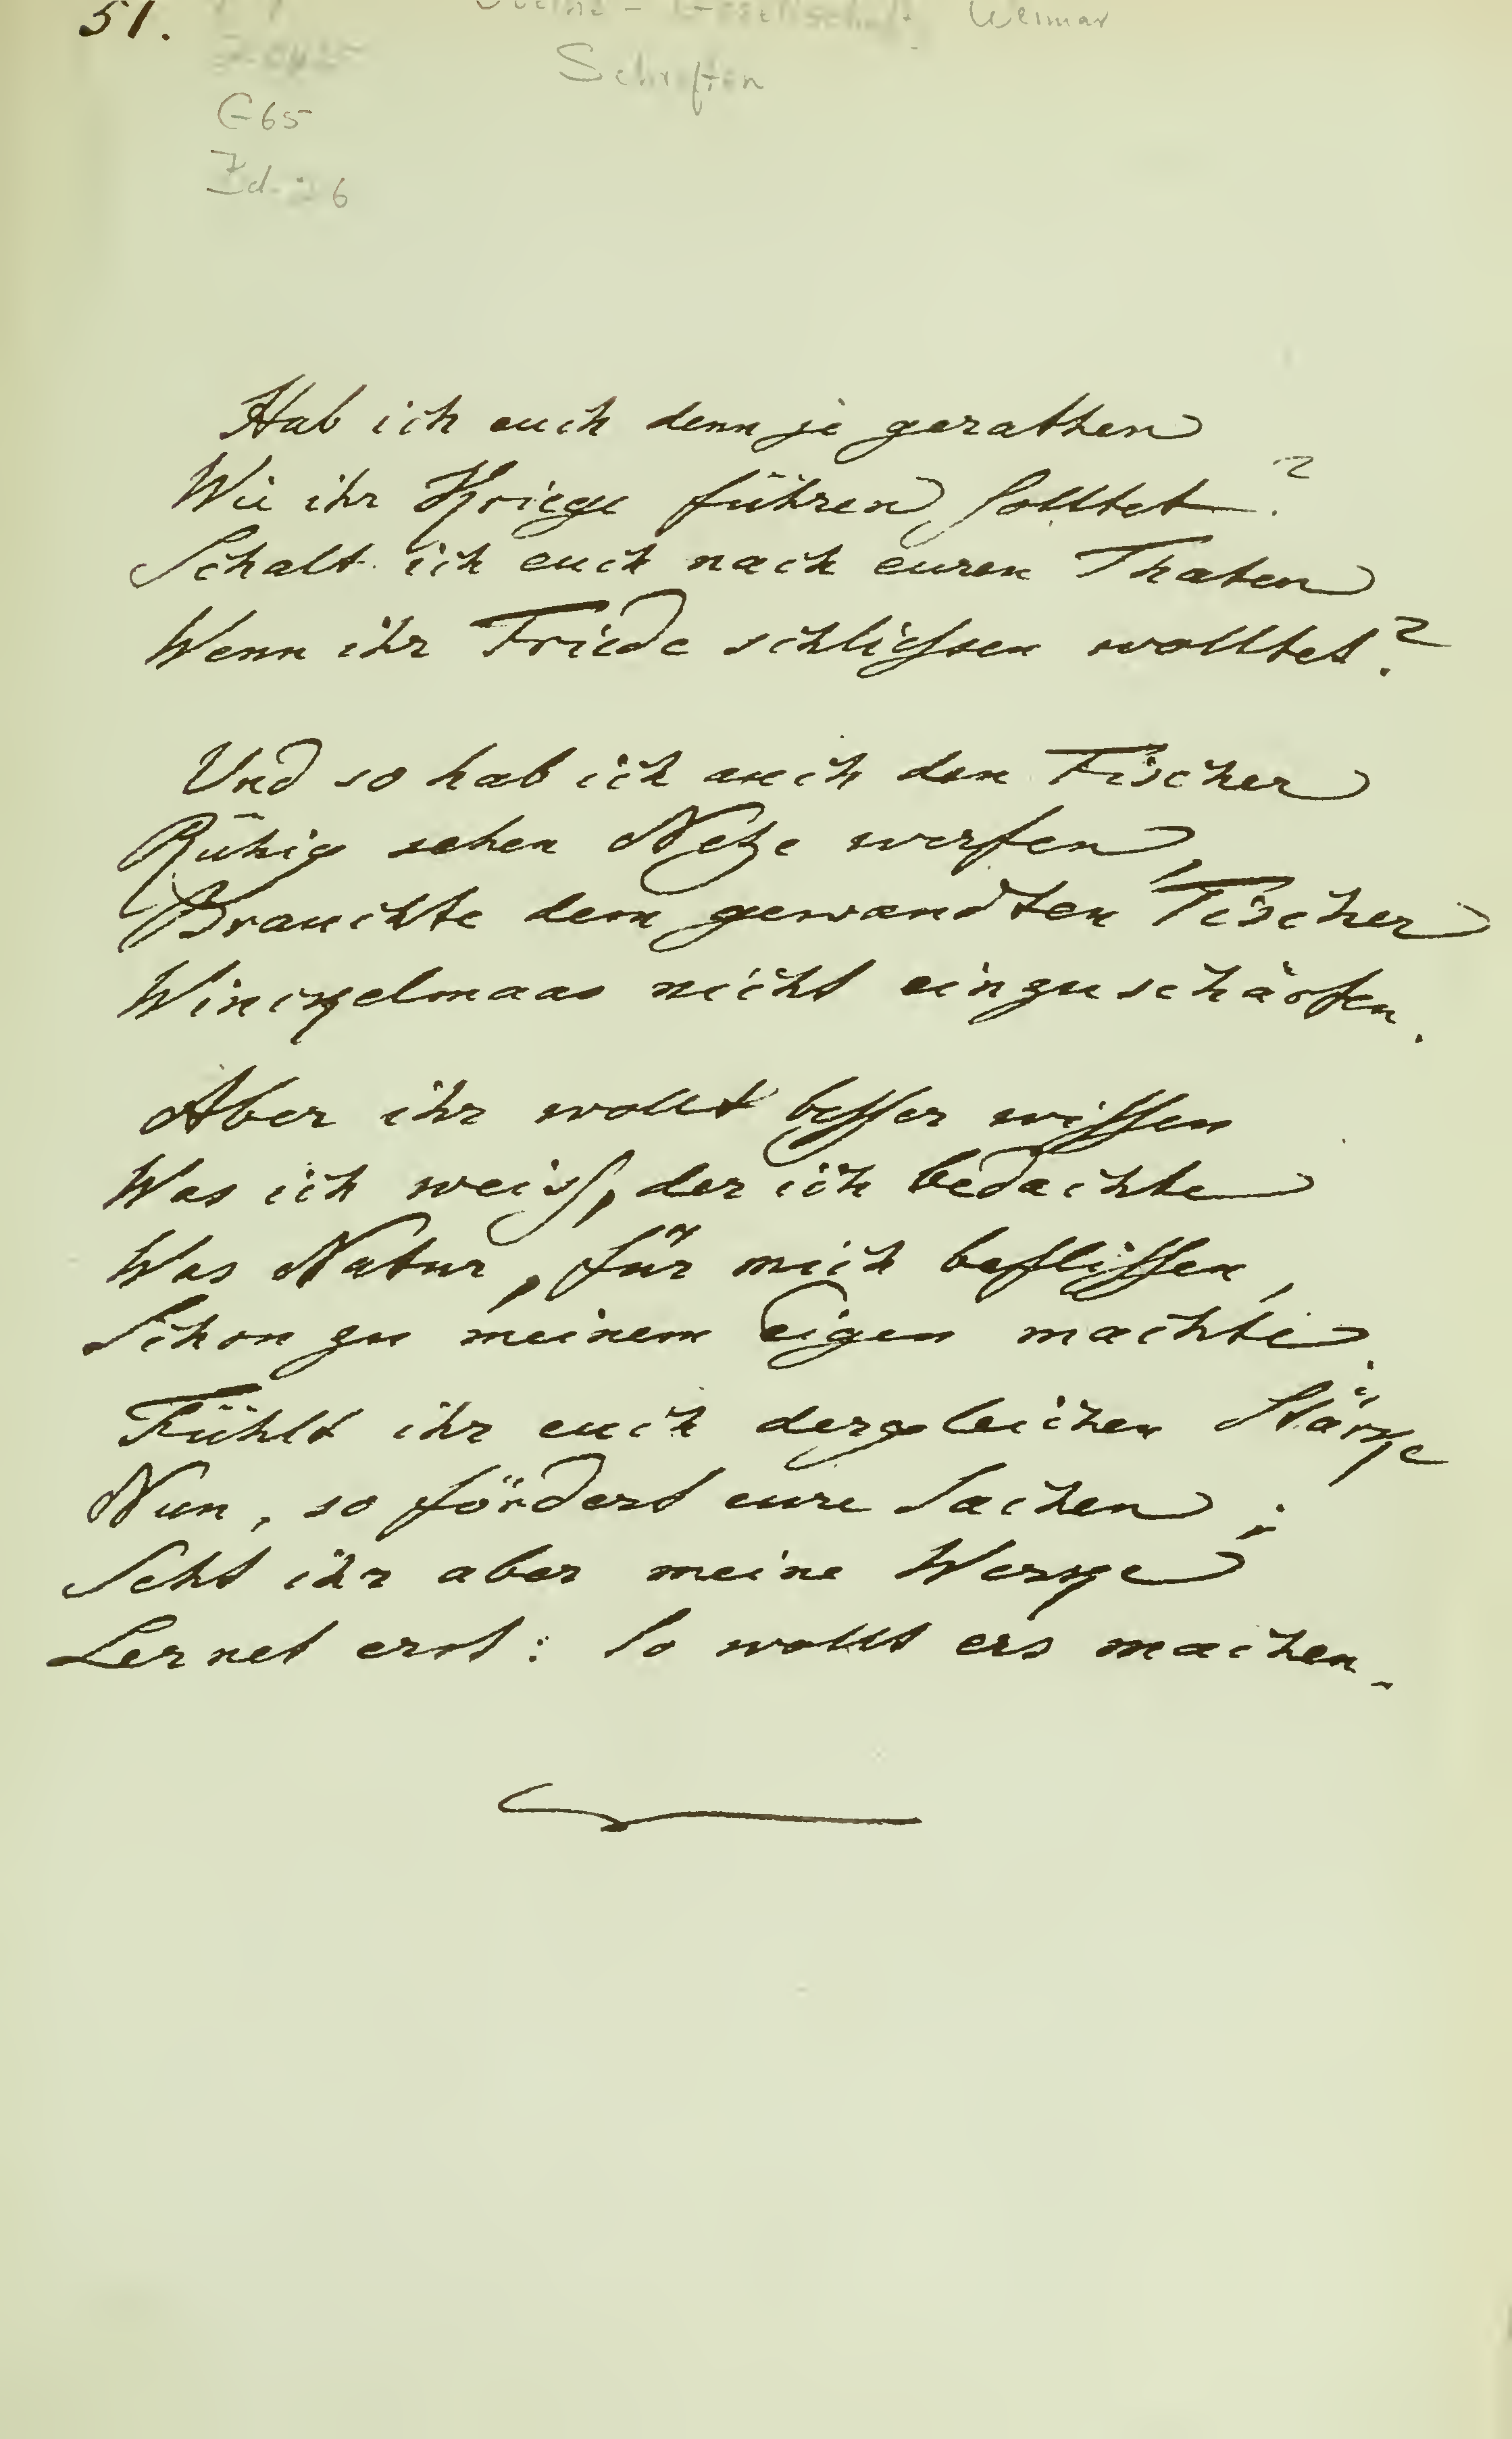 51.
Weimar
Schriften
G65
Hab ich euch denn je gerathen
Wie ihr Kriege führen solltet?
Schalt ich euch nach euren Thaten
Wenn ihr Friede schliessen wolltet?
Und so hab ich auch den Fischer
Rühig sehen Netze werfen,
Brauchte dem gewandten Tischer
Winckelmaas nicht einzuschärfen.
Aber ihr wollt besser wissen
Was ich weiss, der ich bedachte
Was Natur, für mich beflissen,
Schon zu meinem Eigen machte.
Fühlt ihr euch dergleichen Stärke
Nun, so fördert eure Sachen;
Seht ihr aber meine Werke
Lernet erst: so wollt ers machen.